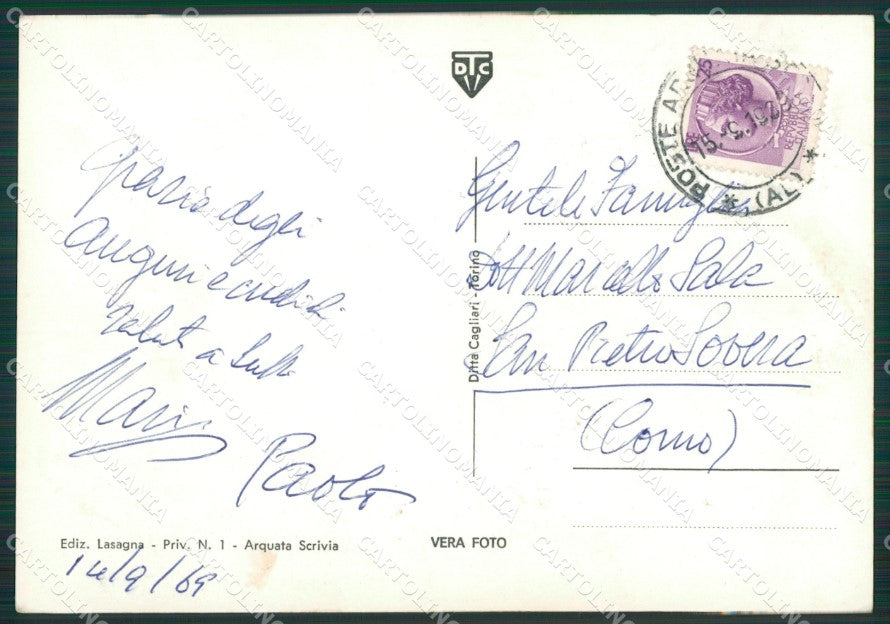 DTC
25
POSTE
REPVBBLICA
ITALIANA
POSTE A
15.-9.19
(AL)
Grazie degli
auguri e cordiali
saluti a tutti
Mario
Paolo
Gentile Famiglia
Dott Marcello Sala
San Pietro Sovera
(Como)
Ditta Cagliari - Torino
Ediz. Lasagna - Priv. N. 1 - Arquata Scrivia
VERA FOTO
14/9/69
CARTOLINOMANIA